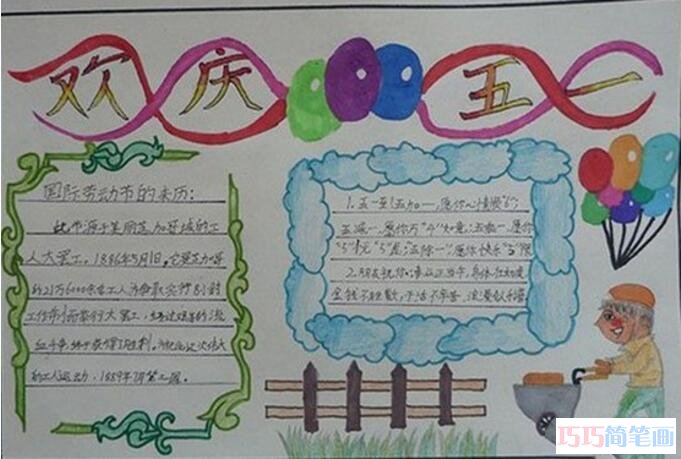 欢庆 五一
国际劳动节的来历:
此节源于美国芝加哥城的工
人大罢工。1886年5月1日,芝加哥
的21万6000余名工人为争取实行8小时
工作制而举行大罢工,经过艰苦的流
血斗争,终于获得了胜利。为纪念这次伟大
的工人运动,1889年7月第二国
1.五一到!五加一,愿你心情顺“6”;
五减一,愿你万“4”如意;五乘一,愿你
“5”忧“5”虑;五除一,愿你快乐“5”限
2.朋友祝你:
巧巧简笔画